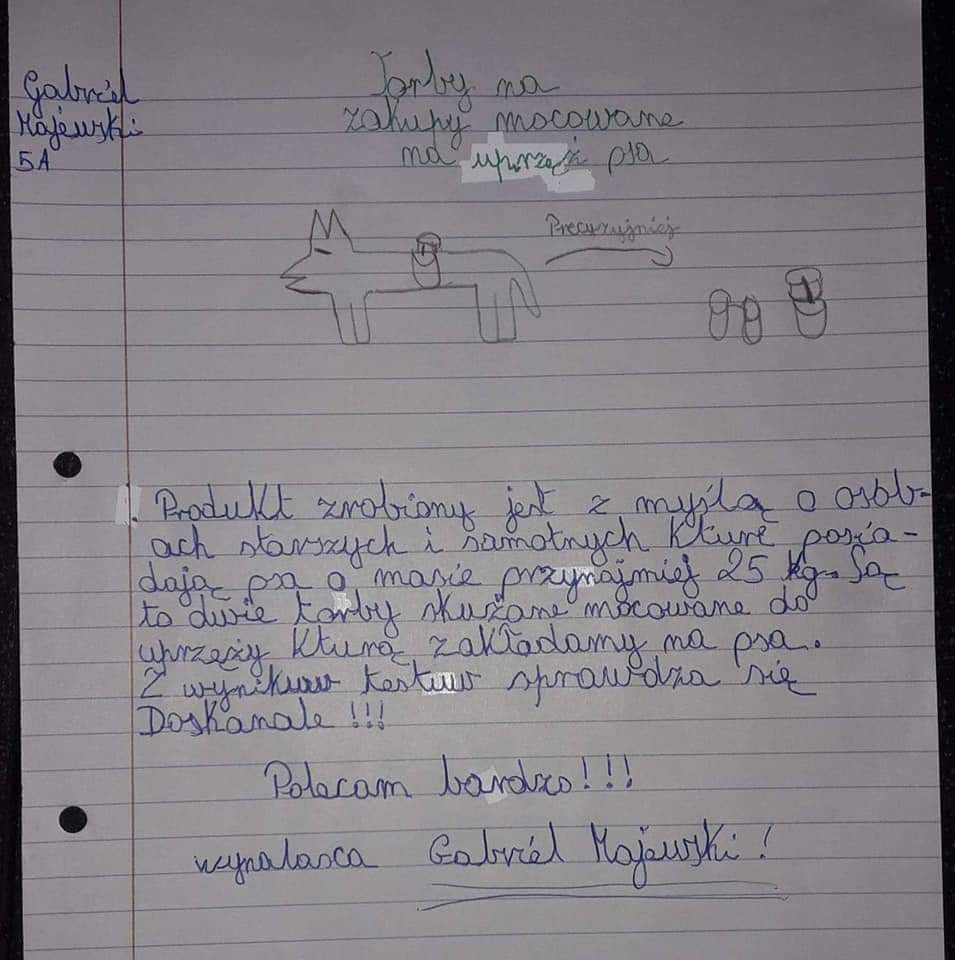 Gabriel
Majewski
5A
Torby na
zakupy mocowane
na uprzęż psa
Precyzyjniej
1. Produkt zrobiony jest z myślą o osob-
ach starszych i samotnych kture posia-
dają psa o masie przynajmiej 25 kg. Są
to dwie torby skużane mocowane do
uprzęży kturą zakładamy na psa.
Z wynikuw testuw sprawdza się
Doskanale !!!
Polecam bardzo!!!
wynalasca Gabriel Majewski!